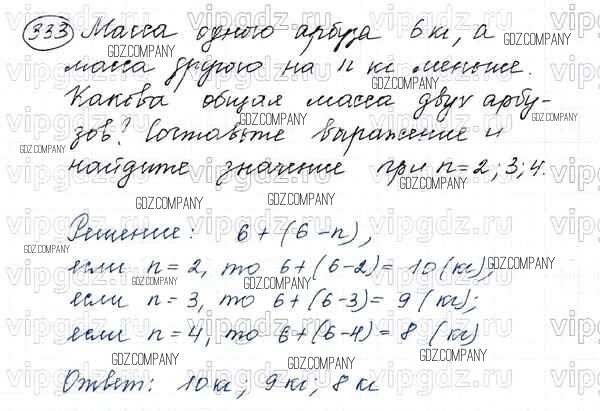 333 Масса одного арбуза 6 кг, а
масса другого на n кг меньше.
Какова общая масса двух арбу-
зов? Составьте выражение и
найдите значение при n=2; 3; 4.
Решение: 6+(6-n),
если n=2, то 6+(6-2)=10 (кг),
если n=3, то 6+(6-3)=9 (кг);
если n=4, то 6+(6-4)=8 (кг)
Ответ: 10кг; 9кг; 8кг